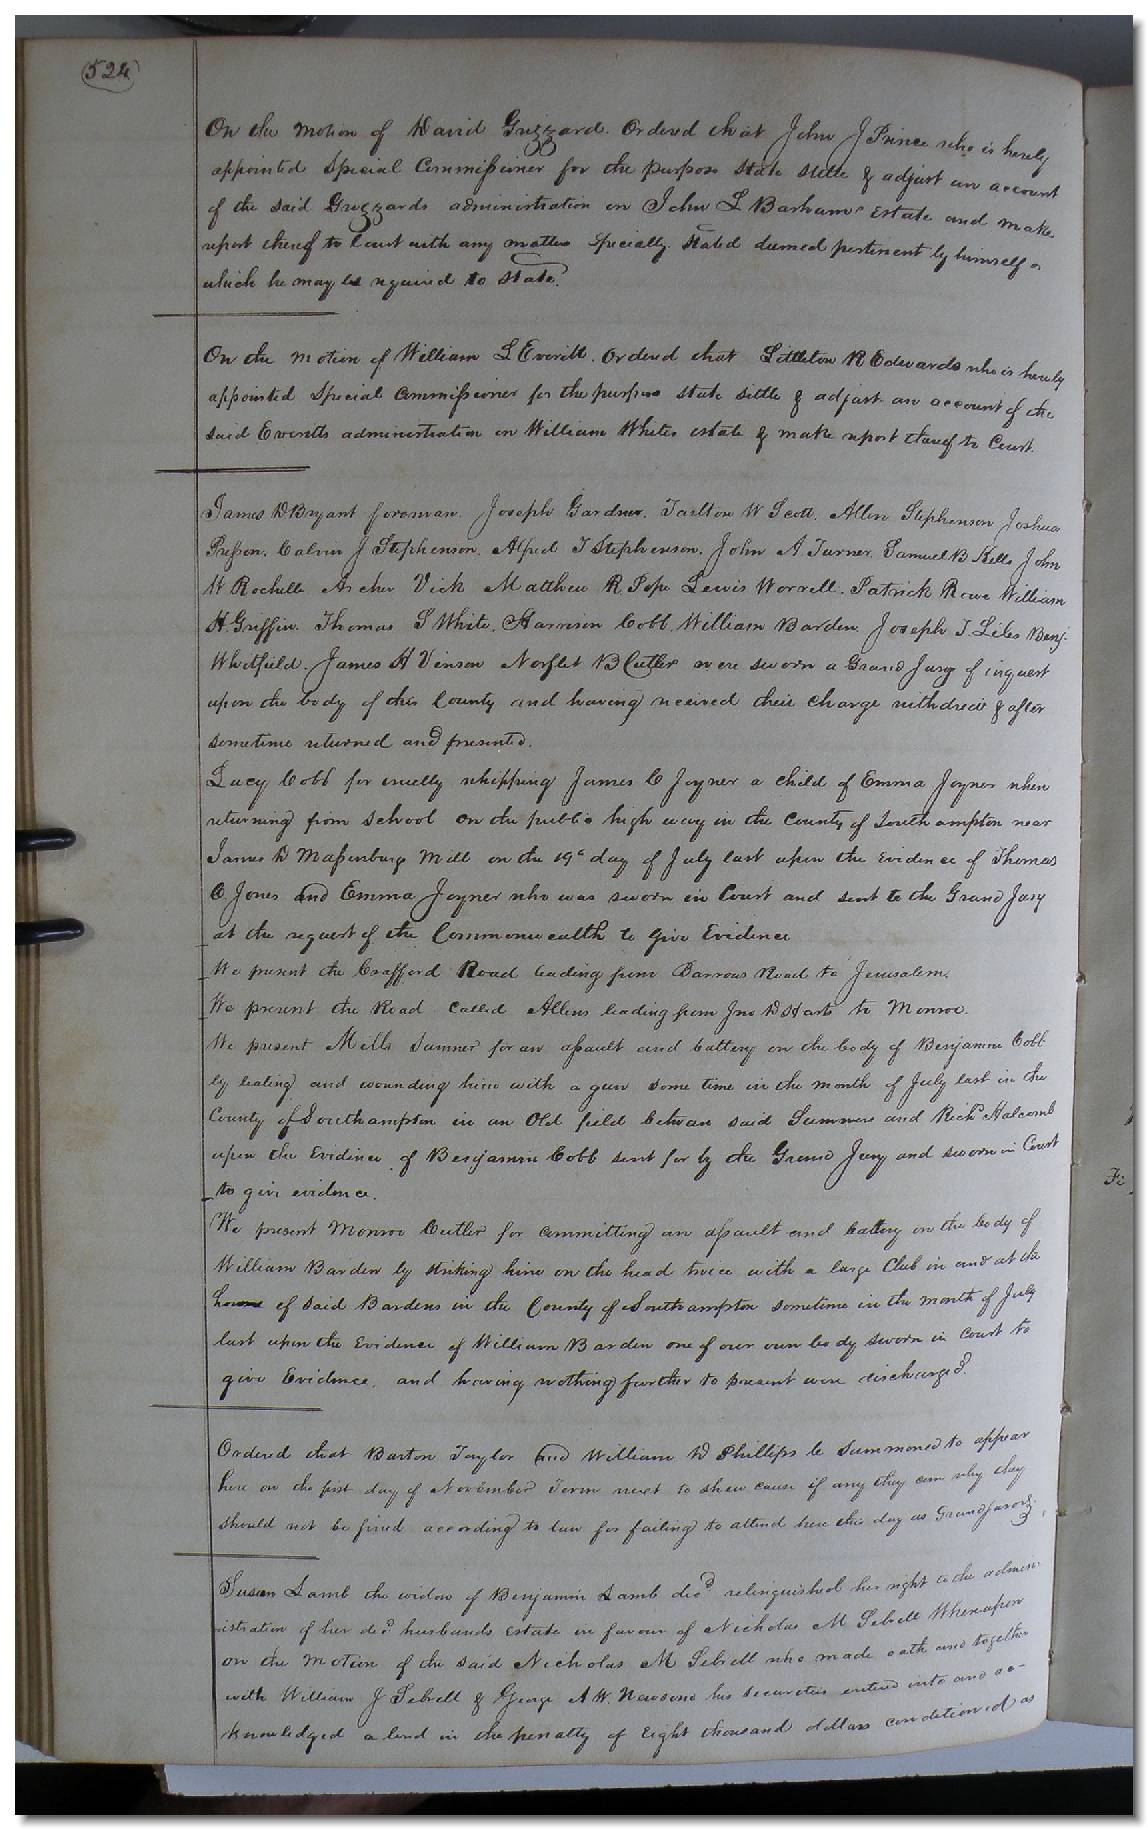 524
On the motion of David Grizzard. Ordered that John J Prince who is hereby
appointed Special Commissioner for the purpose state settle & adjust an account
of the said Grizzards administration on John L Barhams Estate and make
report thereof to Court with any matters Specially stated deemed pertinent by himself or
which he may be required to State.
On the motion of William L Everitt. Ordered that Littleton R Edwards who is hereby
appointed Special Commissioner for the purpose state settle & adjust an account of the
said Everitts administration on William Whites estate & make report thereof to Court.
James D Bryant foreman. Joseph Gardner. Tarlton W Scott. Allen Stephenson Joshua
Presson. Calvin J Stephenson. Alfred T Stephenson. John A Turner. Samuel B Kello John
W Rochelle Archer Vick Matthew R Pope Lewis Worrell. Patrick Rowe William
H Griffin. Thomas S White. Harrison Cobb. William Barden. Joseph T. Liles Benj.
Whitfield. James H Vinson Norflet B Cutler were sworn a Grand Jury of inquest
upon the body of this County and having received their charge withdrew & after
sometime returned and presented.
Lucy Cobb for cruelly whipping James C Joyner a child of Emma Joyner when
returning from School on the public high way in the County of Southampton near
James D Massenburg Mill on the 19th day of July last upon the Evidence of Thomas
C. Jones and Emma Joyner who was sworn in Court and sent to the Grand Jury
at the request of the Commonwealth to give Evidence
We present the Crafford Road leading from Barrows Road to Jerusalem.
We present the Road called Allens leading from Jno D Harts to Monroe.
We present Mills Sumner for an assault and battery on the body of Benjamin Cobb
by beating and wounding him with a gun some time in the month of July last in the
County of Southampton in an Old field between said Sumners and Richd Halcomb
upon the Evidence of Benjamin Cobb sent for by the Grand Jury and sworn in Court
to give evidence.
We present Monroe Cutler for committing an assault and battery on the body of
William Barden by striking him on the head twice with a large Club in and at the
house of said Bardens in the County of Southampton sometime in the month of July
last upon the Evidence of William Barden one of our own body sworn in Court to
give Evidence. and having nothing further to present were discharged.
Ordered that Barton Taylor and William D Phillips be Summoned to appear
here on the first day of November Term next to shew cause if any they can why they
should not be fined according to law for failing to attend here this day as Grand jurors.
Susan Lamb the widow of Benjamin Lamb decd relinquished her right to the admin-
istration of her decd husbands Estate in favour of Nicholas M Sebrell Whereupon
on the motion of the said Nicholas M Sebrell who made oath and together
with William J Sebrell & George A W. Newsom his securities entered into and ac-
knowledged a bond in the penalty of Eight thousand dollars conditioned as